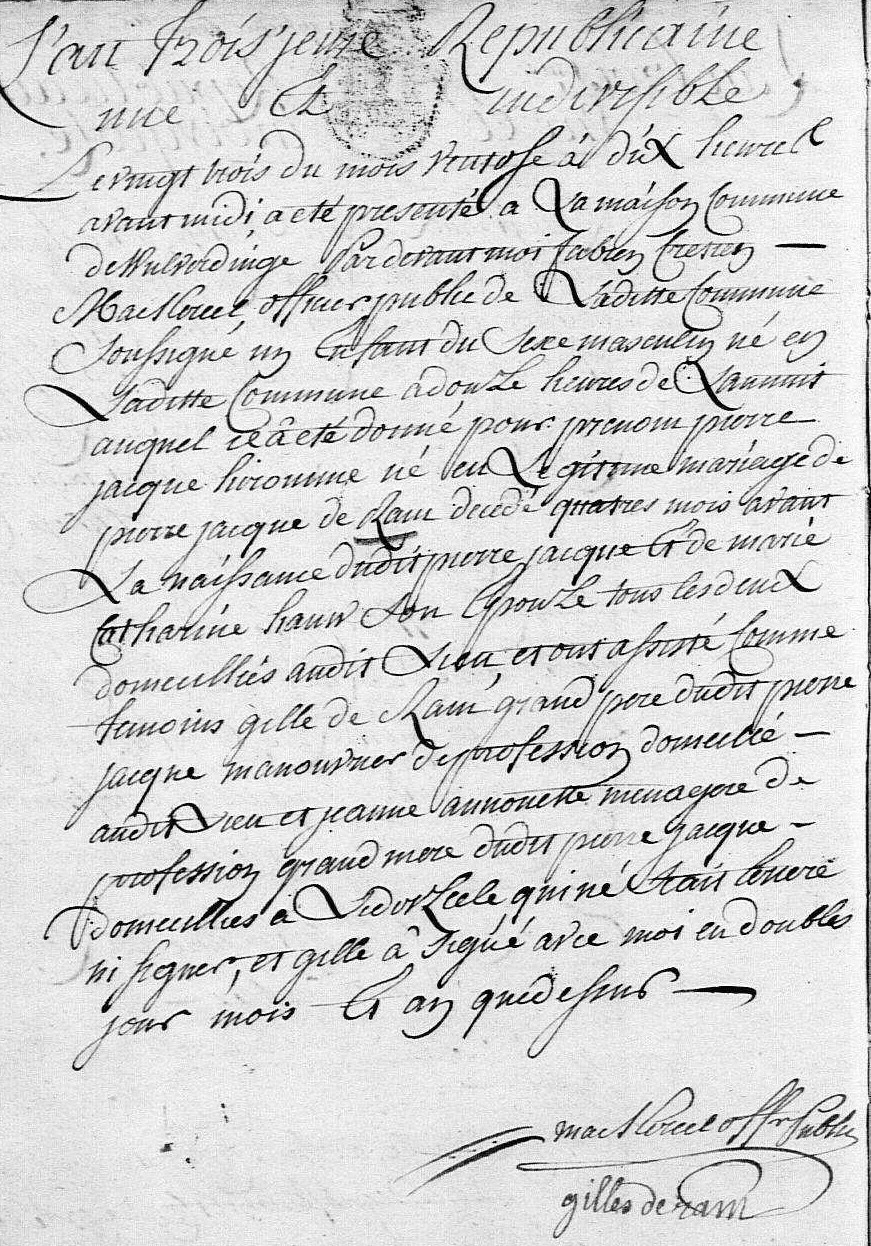 L'an troisieme Republicaine
une Et indivisible
Le vingt trois du mois ventose à dix heures
avant midi, a eté presenté a La maison Commune
de Wulverdinge Par devant moi fabien Cresien
Mac officier public de Laditte Commune
Soussigné un Enfant du Sexe masculin né en
Laditte Commune a douze heures de La nuit
auquel il â eté donné pour prenom pierre
jacque hironime né en Legitime mariage de
pierre jacque de Ram decedé quatres mois avant
La naissance dudit pierre jacque Et de marie
Catharine hauw Son Epouze tous les deux
domeciliés audit Lieu, et ont assisté Comme
temoins gille de Ram, grand pere dudit pierre
jacque manouvrier de profession domecilié
audit Lieu et jeanne annonette menagere de
profession grand mere dudit pierre jacque
domecilliés a Lederzeele qui né Scait Ecrire
ni signer, et gille â signé avec moi en doubles
jour mois Et an que dessus
offr public
gilles de ram